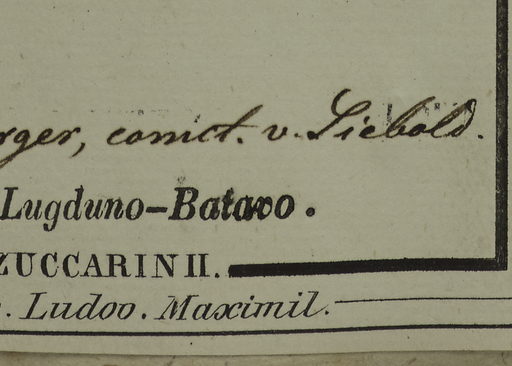 rger, comict. v. Siebold.
Lugduno-Batavo.
ZUCCARINII.
. Ludov. Maximil.